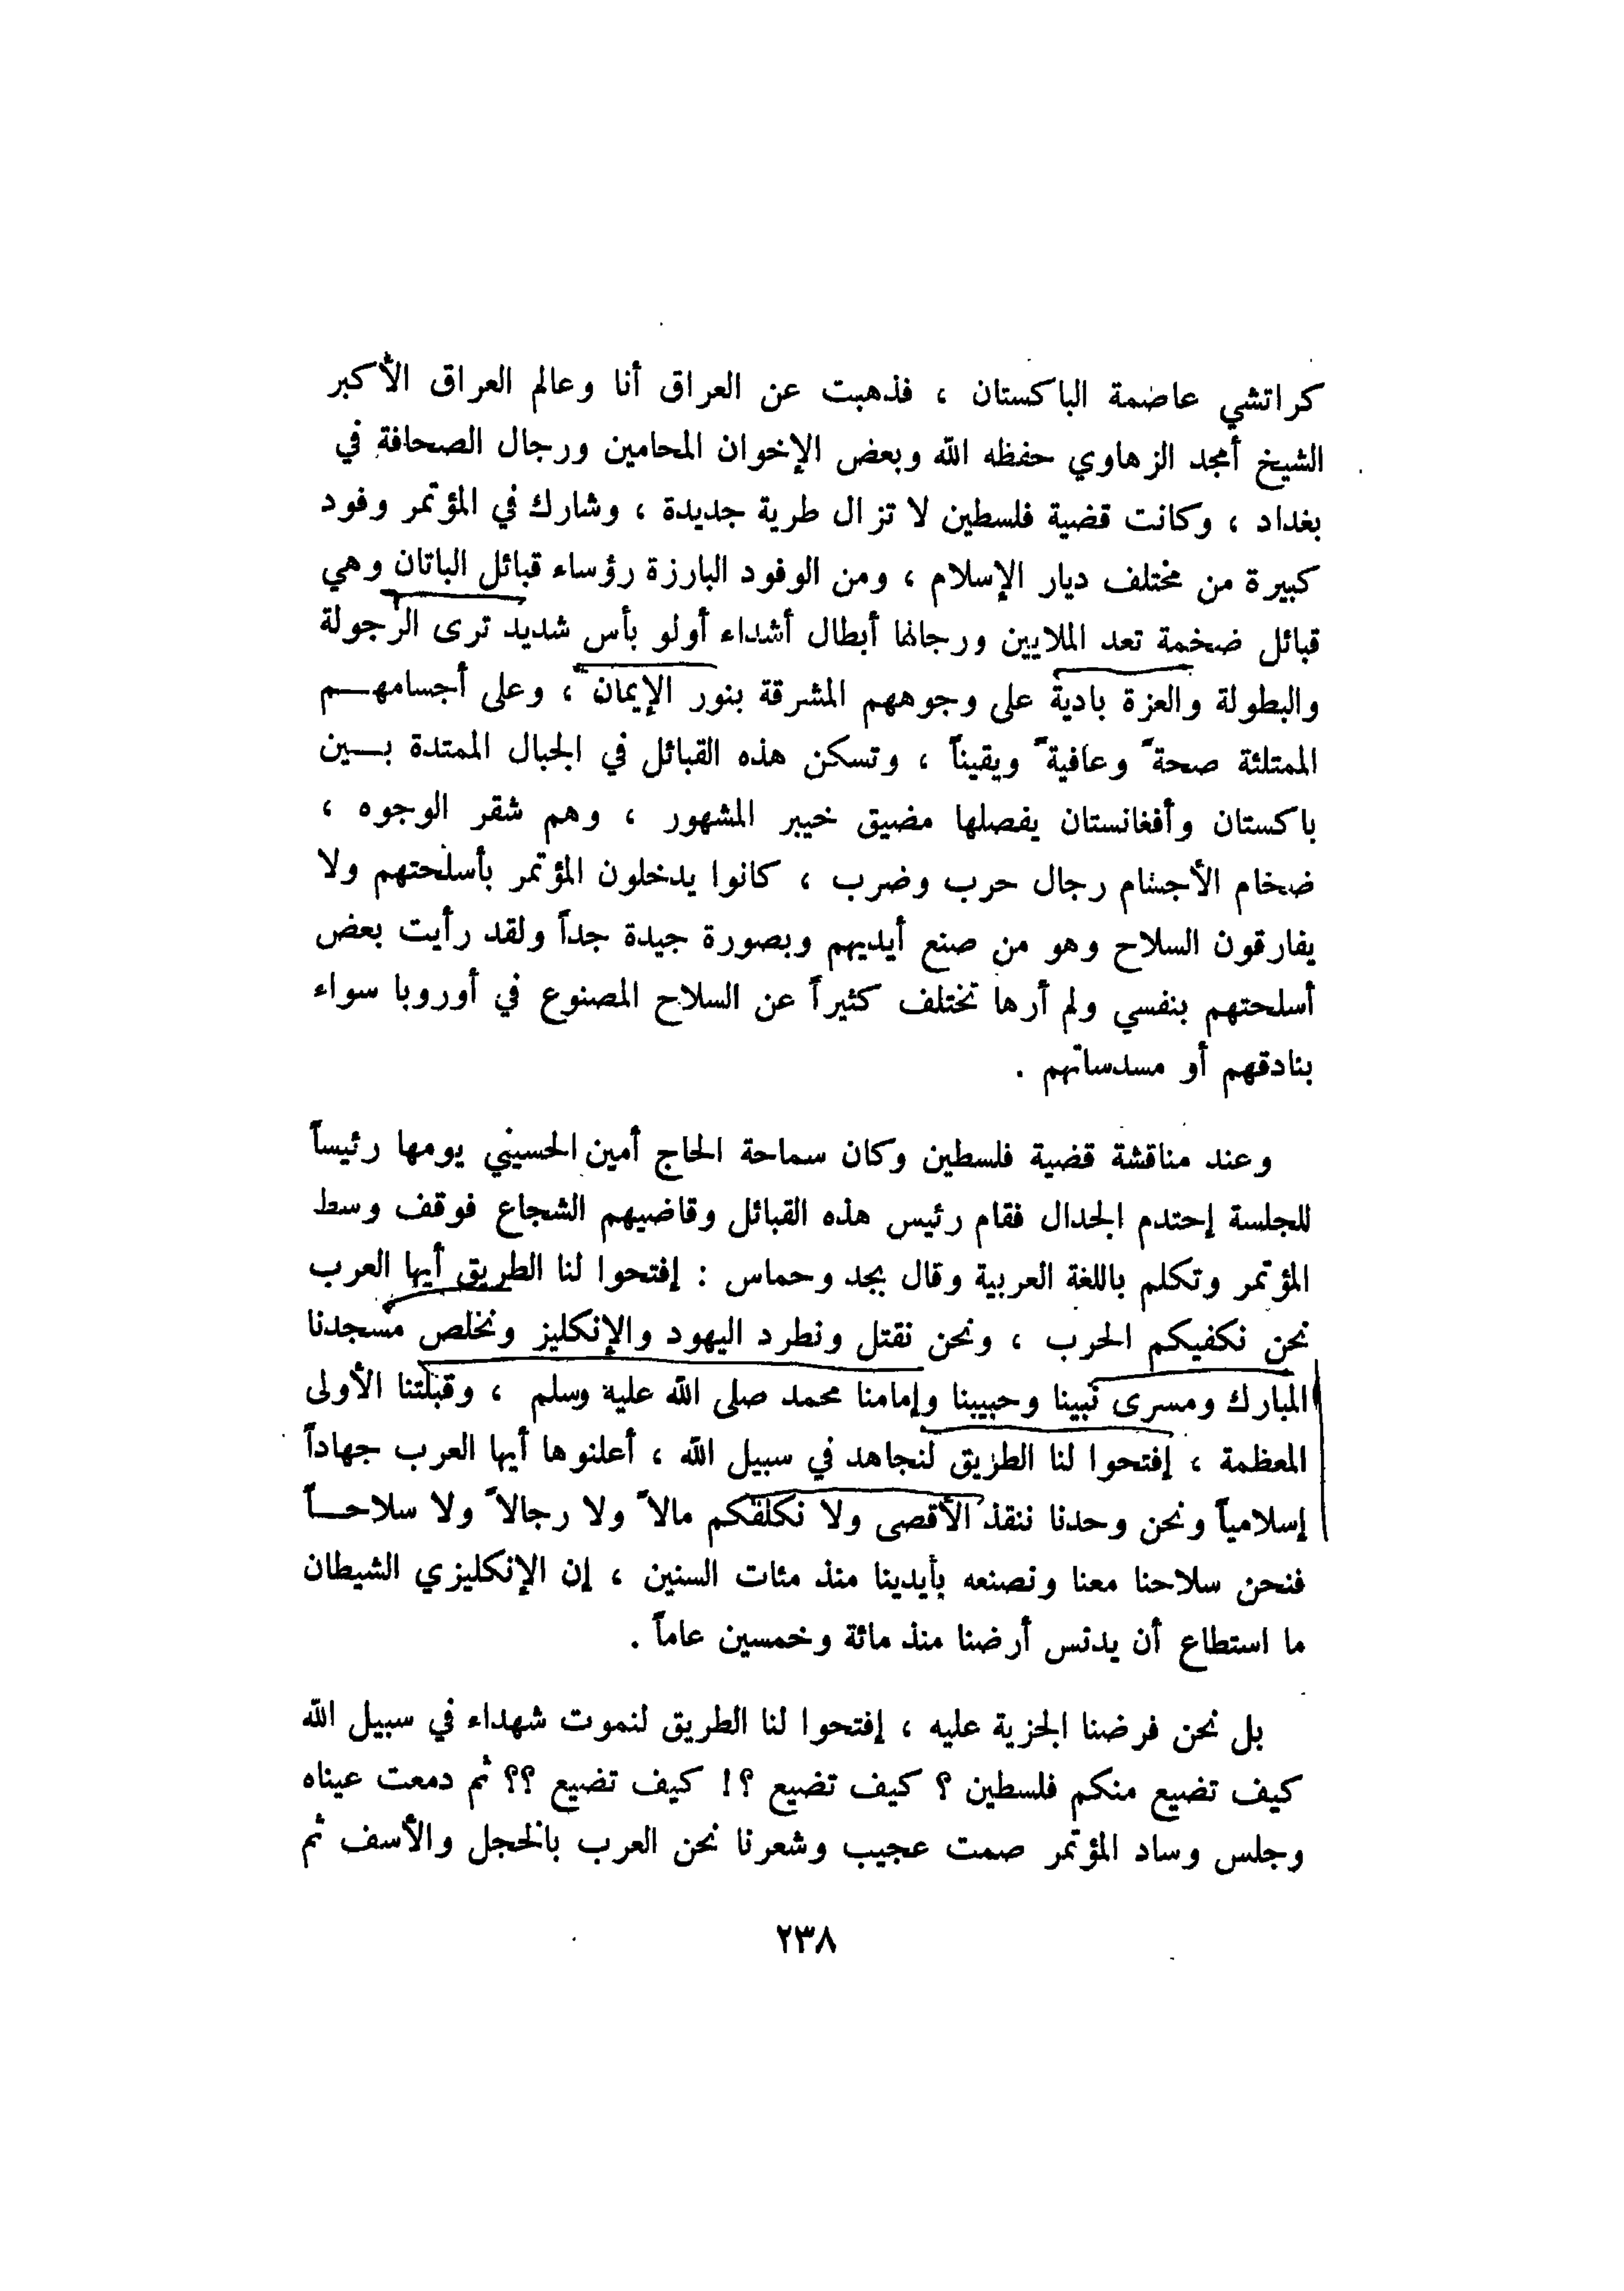 كراتشي عاصمة الباكستان ، فذهبت عن العراق أنا وعالم العراق الأكبر
الشيخ أمجد الزهاوي حفظه الله وبعض الإخوان المحامين ورجال الصحافة في
بغداد ، وكانت قضية فلسطين لا تزال طرية جديدة ، وشارك في المؤتمر وفود
كبيرة من مختلف ديار الإسلام ، ومن الوفود البارزة رؤساء قبائل الباتان وهي
قبائل ضخمة تعد الملايين ورجالها أبطال أشداء أولو بأس شديد ترى الرجولة
والبطولة والعزة بادية على وجوههم المشرقة بنور الإيمان ، وعلى أجسامهــم
الممتلئة صحة ً وعافية ً ويقيناً ، وتسكن هذه القبائل في الجبال الممتدة بــين
باكستان وأفغانستان يفصلها مضيق خيبر المشهور ، وهم شقر الوجوه ،
ضخام الأجسام رجال حرب وضرب ، كانوا يدخلون المؤتمر بأسلحتهم ولا
يفارقون السلاح وهو من صنع أيديهم وبصورة جيدة جداً ولقد رأيت بعض
أسلحتهم بنفسي ولم أرها تختلف كثيراً عن السلاح المصنوع في أوروبا سواء
بنادقهم أو مسدساتهم .
وعند مناقشة قضية فلسطين وكان سماحة الحاج أمين الحسيني يومها رئيساً
للجلسة إحتدم الجدال فقام رئيس هذه القبائل وقاضيهم الشجاع فوقف وسط
المؤتمر وتكلم باللغة العربية وقال بجد وحماس : إفتحوا لنا الطريق أيها العرب
نحن نكفيكم الحرب ، ونحن نقتل ونطرد اليهود والإنكليز ونخلص مسجدنا
المبارك ومسرى نبينا وحبيبنا وإمامنا محمد صلى الله عليه وسلم ، وقبلتنا الأولى
المعظمة ، إفتحوا لنا الطريق لنجاهد في سبيل الله ، أعلنوها أيها العرب جهاداً
إسلامياً ونحن وحدنا ننقذ الأقصى ولا نكلفكم مالا ً ولا رجالا ً ولا سلاحــاً
فنحن سلاحنا معنا ونصنعه بأيدينا منذ مئات السنين ، إن الإنكليزي الشيطان
ما استطاع أن يدنس أرضنا منذ مائة وخمسين عاماً .
بل نحن فرضنا الجزية عليه ، إفتحوا لنا الطريق لنموت شهداء في سبيل الله
كيف تضيع منكم فلسطين ؟ كيف تضيع ؟! كيف تضيع ؟؟ ثم دمعت عيناه
وجلس وساد المؤتمر صمت عجيب وشعرنا نحن العرب بالخجل والأسف ثم
٢٣٨